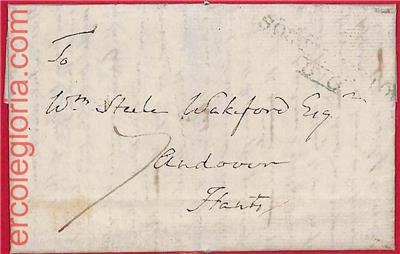 To
Wm Steele Wakeford Esqr
7
Andover
Hants
ercolegloria.com